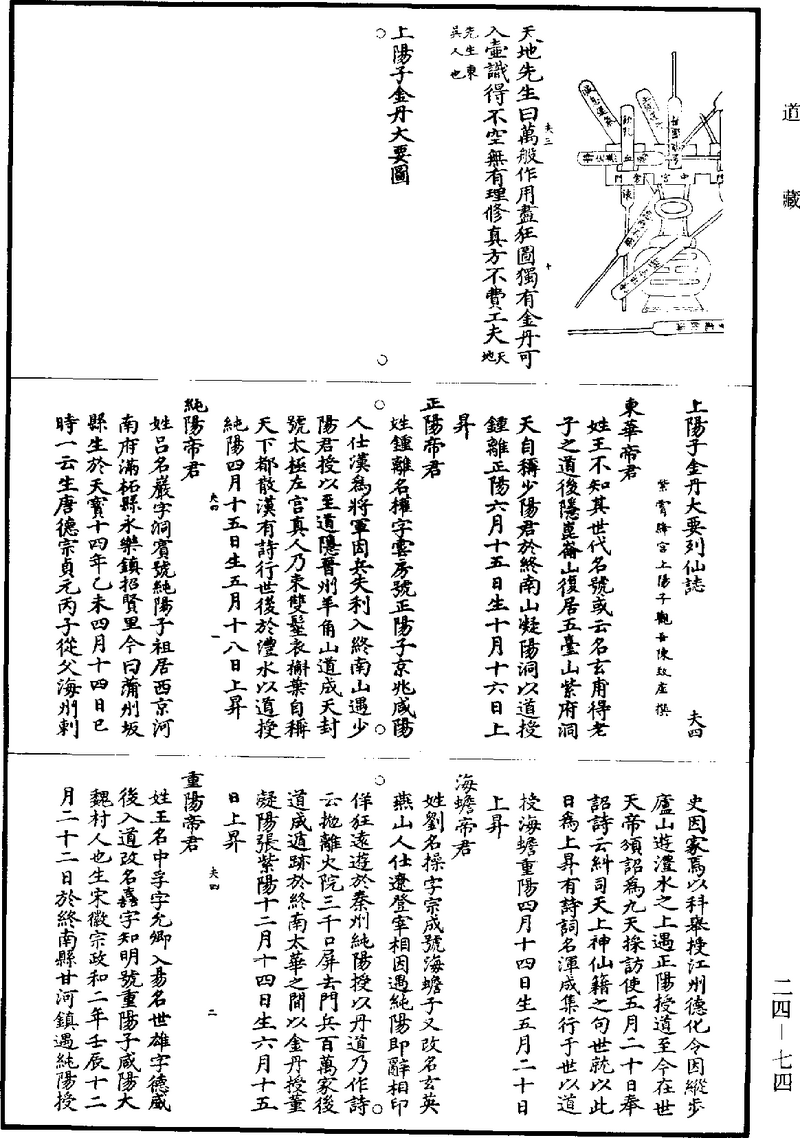 道藏
天地先生曰萬般作用盡狂圖獨有金丹可
入壺識得不空無有理修真方不費工夫天地
先生東
吳人也
夫三
十
上陽子金丹大要圖
上陽子金丹大要列仙誌
夫四
紫霄絳宮上陽子觀吾陳致虛撰
東華帝君
姓王不知其世代名號或云名玄甫得老
子之道後隱崑崙山復居五臺山紫府洞
天自稱少陽君於終南山凝陽洞以道授
鍾離正陽六月十五日生十月十六日上
昇
正陽帝君
姓鍾離名權字雲房號正陽子京兆咸陽
人仕漢為將軍因兵失利入終南山遇少
陽君授以至道隱晉州羊角山道成天封
號太極左宮真人乃束雙髻衣槲葉自稱
天下都散漢有詩行世後於澧水以道授
純陽四月十五日生五月十八日上昇
夫四
一
純陽帝君
姓呂名巖字洞賓號純陽子祖居西京河
南府滿柘縣永樂鎮招賢里今曰蒲州坂
縣生於天寶十四年乙未四月十四日巳
時一云生唐德宗貞元丙子從父海州刺
史因家焉以科舉授江州德化令因縱步
廬山遊澧水之上遇正陽授道至今在世
天帝頒詔為九天採訪使五月二十日奉
詔詩云糾司天上神仙籍之句世就以此
日為上昇有詩詞名渾成集行于世以道
授海蟾重陽四月十四日生五月二十日
上昇
海蟾帝君
姓劉名操字宗成號海蟾子又改名玄英
燕山人仕遼登宰相因遇純陽即辭相印
佯狂遠遊於秦州純陽授以丹道乃作詩
云拋離火院三千口屏去門兵百萬家後
道成遁跡於終南太華之間以金丹授董
凝陽張紫陽十二月十四日生六月十五
日上昇
夫四
二
重陽帝君
姓王名中孚字允卿入易名世雄字德威
後入道改名嚞字知明號重陽子咸陽大
魏村人也生宋徽宗政和二年壬辰十二
月二十二日於終南縣甘河鎮遇純陽授
二四－七四